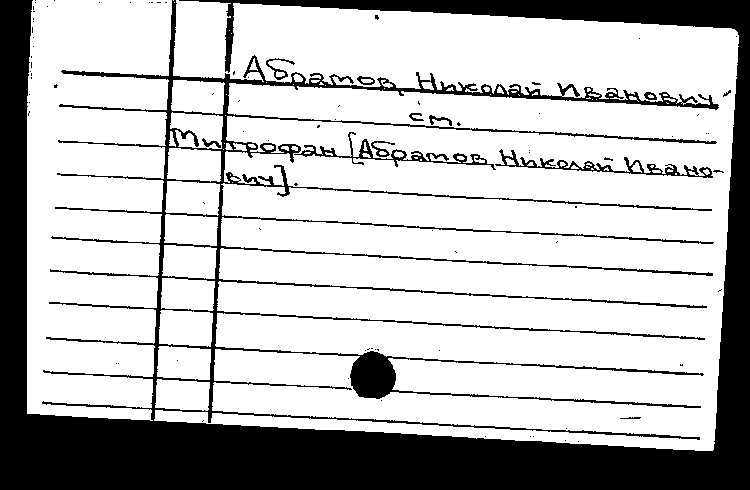 Абрамов, Николай Иванович
см.
Митрофан [Абрамов, Николай Ивано-
вич].